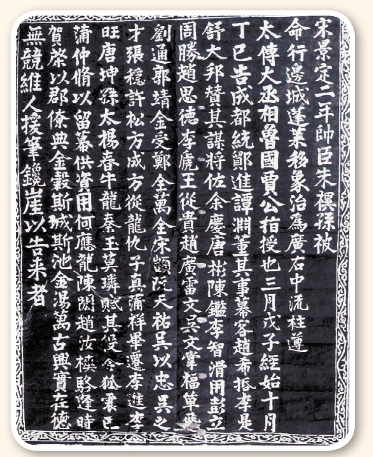 宋景定二年帥臣朱禩孫被
命行邊城蓬萊移象治為廣右中流柱遵
太傅大丞相魯國賈公指授也三月戊子經始十月
丁巳告成都統鄭進譚淵董其事幕客趙希抵李是
舒大邦贊其謀將佐余慶唐樹陳鑑李智滑用彭立
周勝趙思德李虎王從貴趙廣雷文吳文掌福單
劉通郭靖金受鄭全萬全宋顗阮天祐具以忠異之
才張穩許松方成方從龍仇子真蒲祥畢遷李進李
旺唐坤孫太楊春牛龍秦玉莫璘賦其役令狐震己
蒲仲脩以留幕供資用何應龍陳開趙汝楧駱逢時
賀以郡僚典金穀斯城斯池金湯萬古興實在德
無競維人援筆鑱崖以告来者